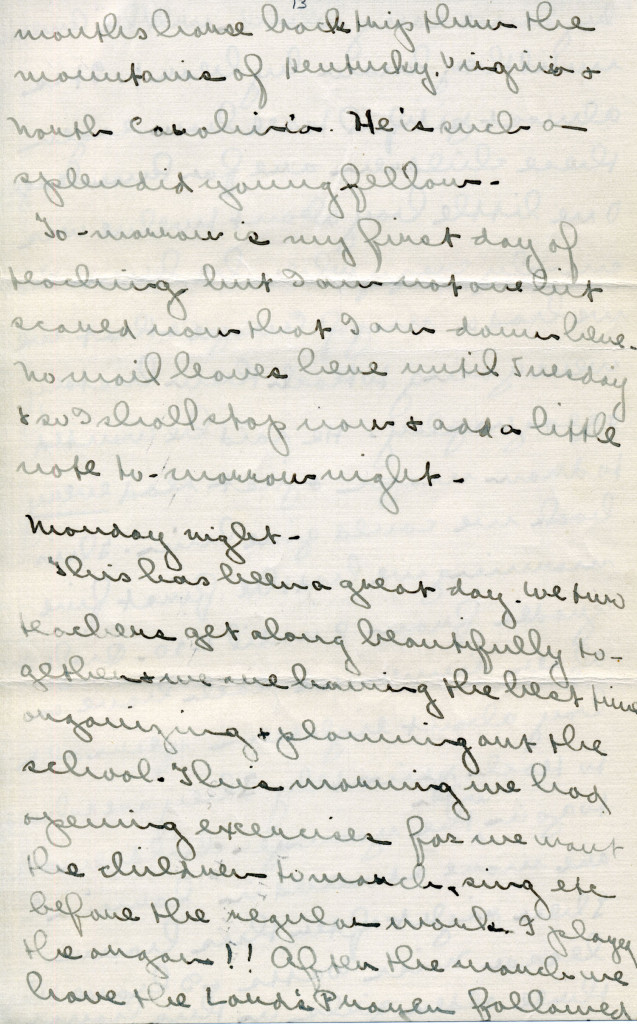 13
months horse back trip thru the
mountains of Kentucky, Virginia &
North Carolinia. He is such a
splendid young fellow -
To-morrow is my first day of
teaching but I am not one bit
scared now that I am down here.
No mail leaves here until Tuesday
& so I shall stop now & add a little
note to-morrow night -
Monday night -
This has been a great day. We two
teachers get along beautifully to-
gether & we are having the best time
organizing & planning out the
school. This morning we had
opening exercises for we want
the children to march, sing etc
before the regular work. I played
the organ!! After the march we
have the Lord's Prayer followed